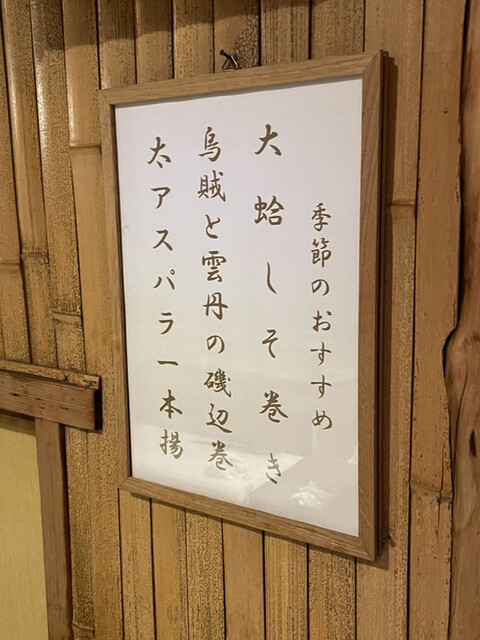 季節のおすすめ
大蛤しそ巻き
烏賊と雲丹の磯辺巻
太アスパラ一本揚